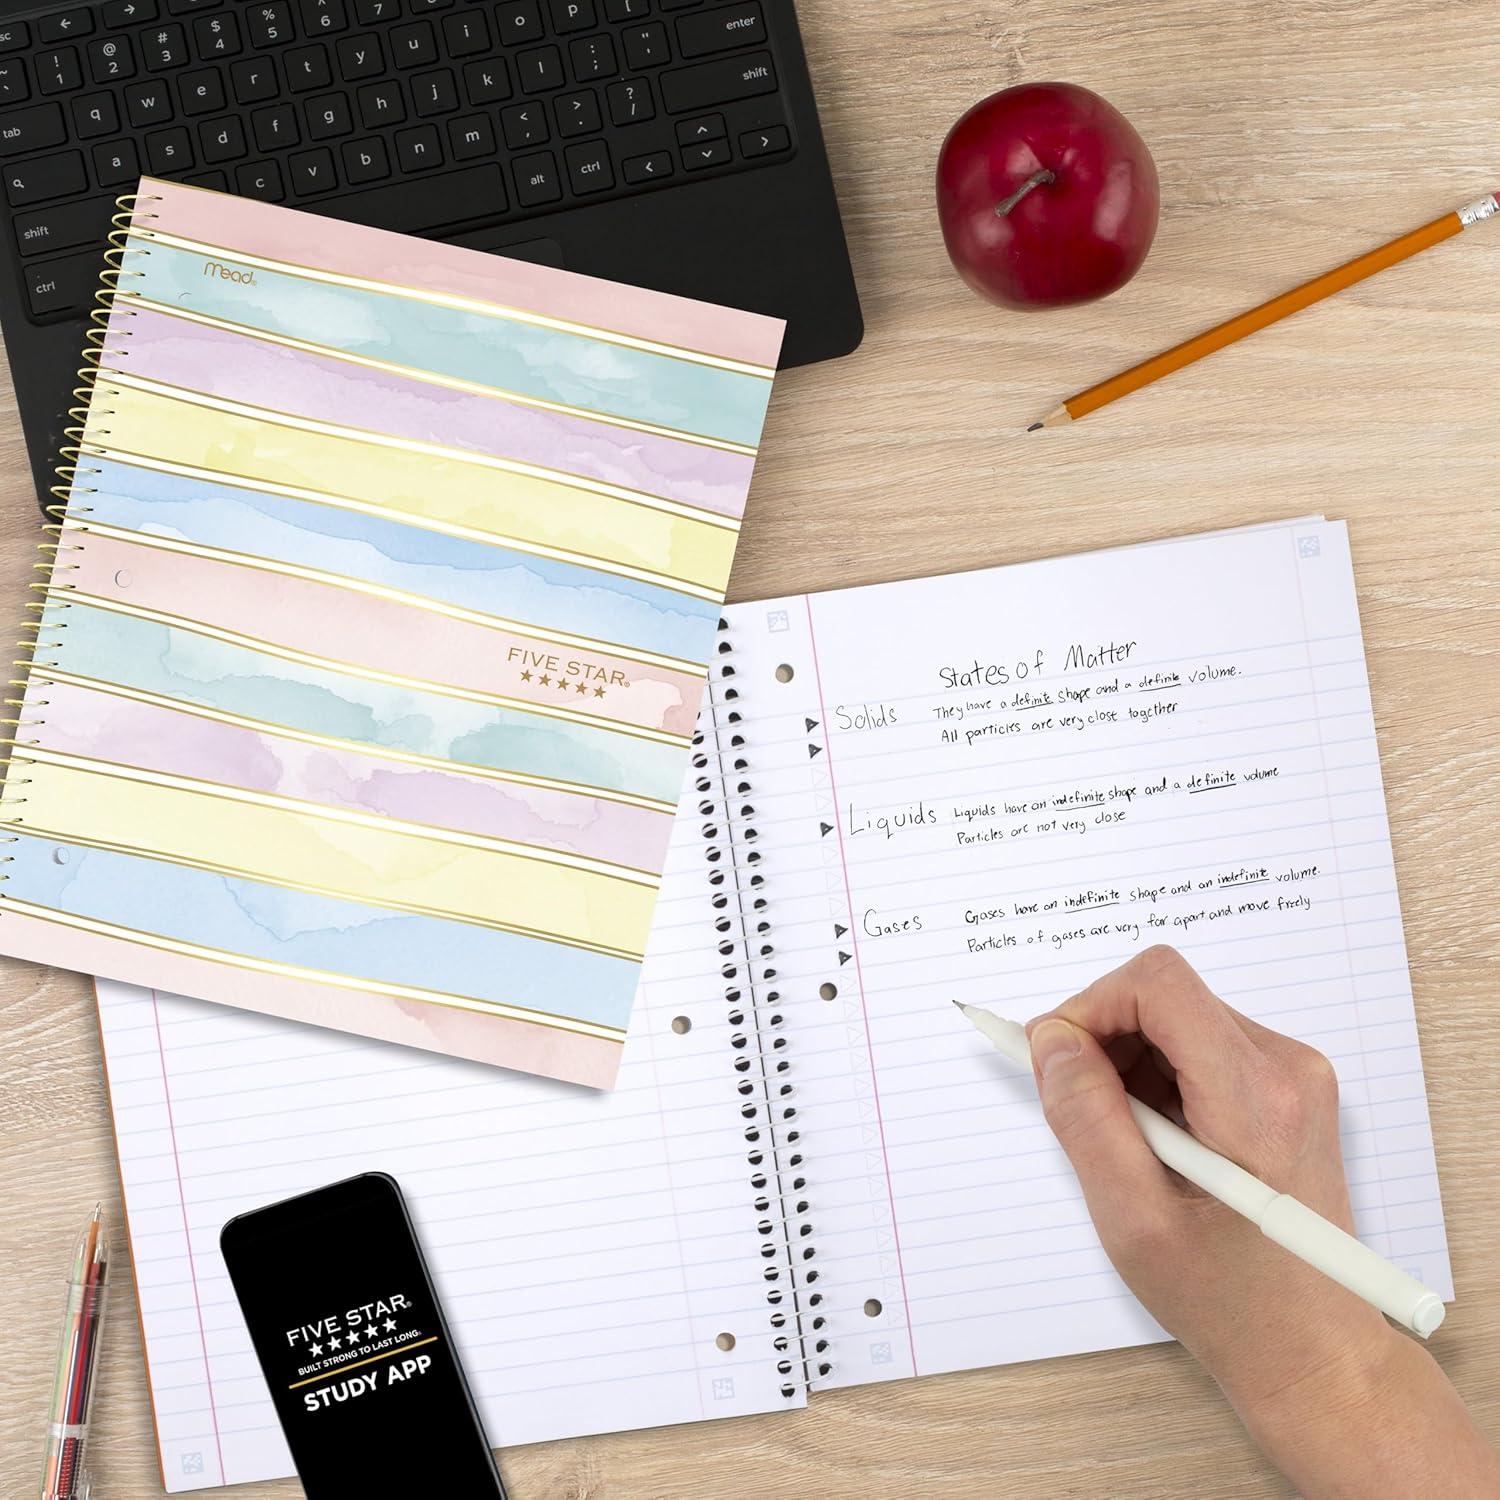 sc ← →
~ ` ! 1 @ 2 # 3 $ 4 % 5 ^ 6
tab q w e r t y u i o p [
a s d f g h j k l : ; " ' enter
shift c v b n m < , > . ? / shift
ctrl alt ctrl
mead®
FIVE STAR®
★★★★★
States of Matter
Solids They have a definite shape and a definite volume.
All particles are very close together
Liquids Liquids have an indefinite shape and a definite volume
Particles are not very close
Gases Gases have an indefinite shape and an indefinite volume.
Particles of gases are very far apart and move freely
FIVE STAR®
★★★★★
BUILT STRONG TO LAST LONG®
STUDY APP